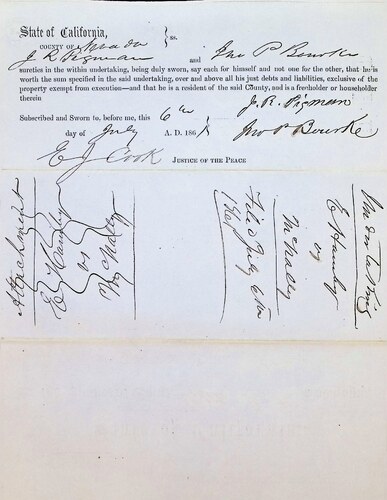 State of California,
COUNTY OF Nevada } ss.
J. R. Pigman and Jno P Bourke
sureties in the within undertaking, being duly sworn, say each for himself and not one for the other, that he is
worth the sum specified in the said undertaking, over and above all his just debts and liabilities, exclusive of the
property exempt from execution—and that he is a resident of the said County, and is a freeholder or householder
therein
J. R. Pigman
Subscribed and Sworn to, before me, this 6th
day of July A. D. 1861
Jno P Bourke
E J Cook JUSTICE OF THE PEACE
Attachment
vs
McNalley
E Hamby
vs
McNalley
Filed July 6th